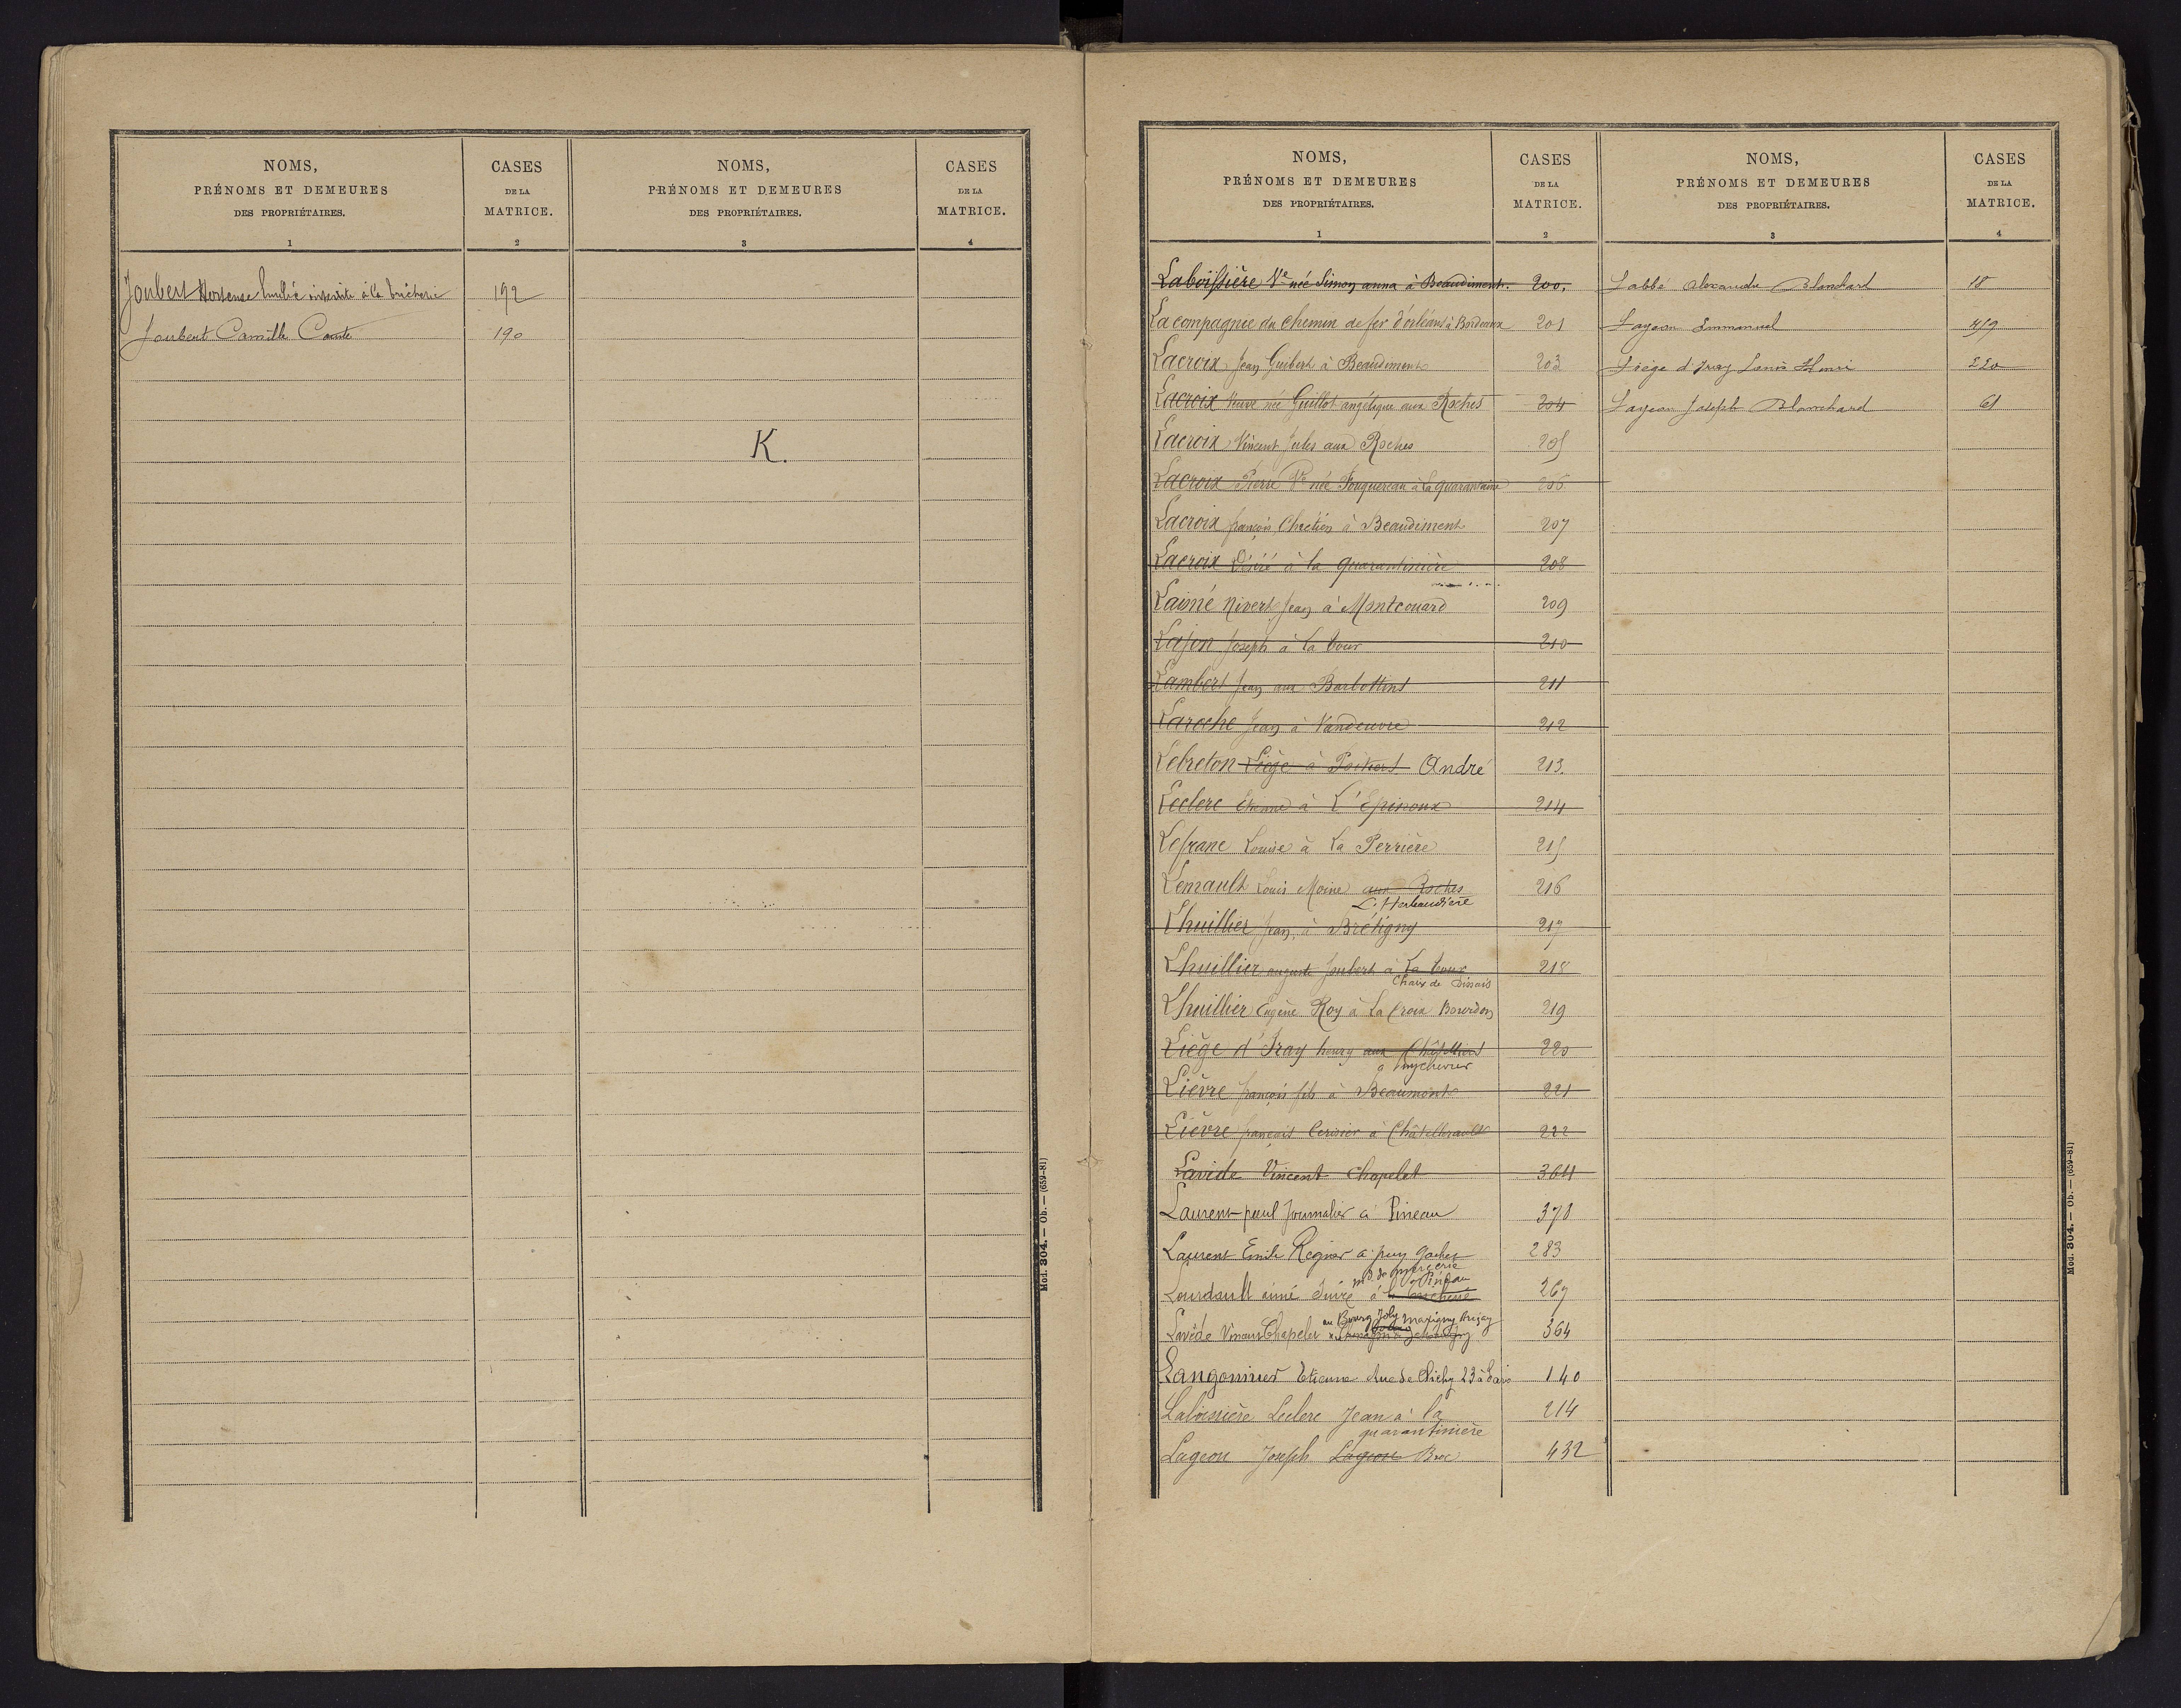 NOMS,
PRÉNOMS ET DEMEURES
DES PROPRIÉTAIRES.
1
CASES
DE LA
MATRICE.
2
NOMS,
PRÉNOMS ET DEMEURES
DES PROPRIÉTAIRES.
3
CASES
DE LA
MATRICE.
4
Joubert Hortense Emilie à la Tricherie 192
Joubert Camille Comte 190
K.
Mod. 304. — Ob. — (659-81)
NOMS,
PRÉNOMS ET DEMEURES
DES PROPRIÉTAIRES.
1
CASES
DE LA
MATRICE.
2
NOMS,
PRÉNOMS ET DEMEURES
DES PROPRIÉTAIRES.
3
CASES
DE LA
MATRICE.
4
Laboissière Ve née Simon anna à Beaudiment. 200.
La compagnie du Chemin de fer d'orléans à Bordeaux 201
Lacroix Jean Guibert à Beaudiment 203
Lacroix Veuve née Guillot angélique aux Roches 204
Lacroix Vincent Jules aux Roches 205
Lacroix Pierre Ve née Fouquereau à la quarantaine 206
Lacroix françois Chrétien à Beaudiment 207
Lacroix Désiré à la quarantinière 208
Laimé Nivert Jean à Montcouard 209
Lajon Joseph à la Cour 210
Lambert Jean aux Barbottins 211
Laroche Jean à Vandeuvre 212
Lebreton Liège à Poitiers André 213.
Leclerc Etienne à L'Epinoux 214
Lefranc Louise à La Perrière 215
Lemault Louis Moine aux Roches 216
L'Herbaudière
Lhuillier Jean à Brétigny 217
Lhuillier auguste Joubert à La Cour 218
Chaux de Dissais
Lhuillier Eugène Roy à La Croix Bourdon 219
Liège d'Iray henry aux Châtelliers 220
à Puychevrier
Lièvre françois fils à Beaumont 221
Lièvre françois Cerisier à Châtellerault 222
Lavide Vincent Chapelet 364
Laurent paul Journalier à Pineau 378
Laurent Emile Regnier à puy gachet 283
md. de mercerie
Pineau
Lourdault aimé à la Tricherie 267
au Bourg Joly Marigny Brizay
Lavide Vincent Chapelet 364
Langonnier Etienne Rue de Clichy 23 à Paris 140
Laboissière Leclerc Jean à la 214
quarantinière
Lageon Joseph Lageon Broc 432
Labbé Alexandre Blanchard 18
Lageon Emmanuel 419
Liège d'Iray Louis Henri 220
Lageon Joseph Blanchard 61
Mod. 304. — Ob. — (659-81)